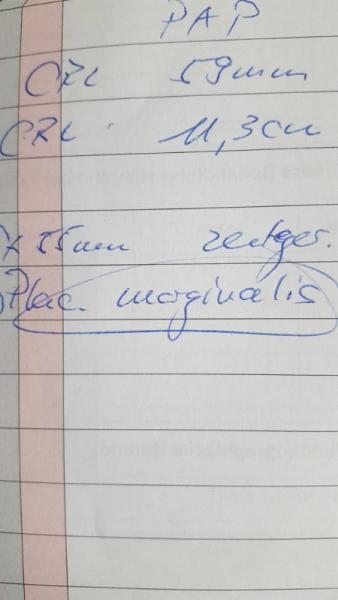 PAP
CRL 59mm
CRL 11,3cm
x 55mm zeitger.
Plac. marginalis